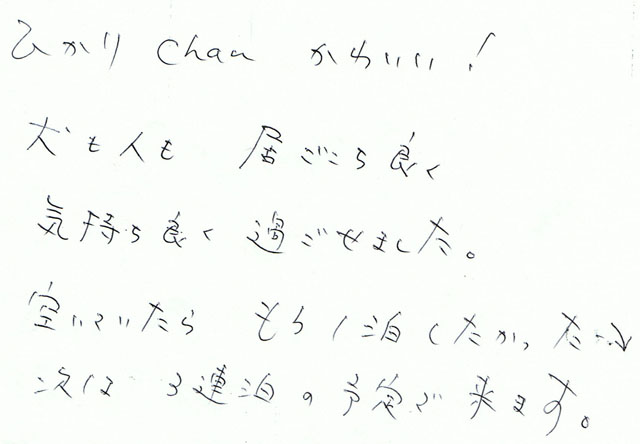 ひかり chan かわいい!
犬も人も 居ごこち良く
気持ち良く 過ごせました。
空いていたら もう1泊したかった↘
次は 3連泊の予定で来ます。